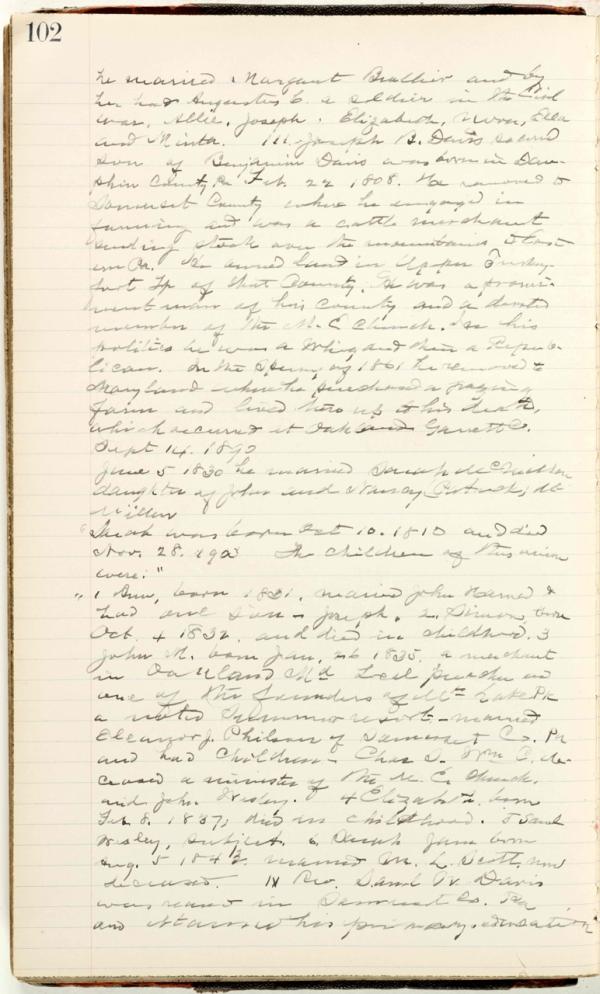 102
he married Margaret Brallier and by
her had Augustus C. a soldier in the Civil
war, Allie, Joseph, Elizabeth, Ella
and Minta. III. Joseph B. Davis second
son of Benjamin Davis was born in Dau-
phin County, Pa Feb. 22 1808. He removed to
Somerset County where he engaged in
farming and was a cattle merchant
sending stock over the mountains to East-
ern Pa. He owned land in Upper Turkey-
foot Tp of that County. He was a promi-
nent man of his county and a devoted
member of the M. E Church. In his
politics he was a Whig and then a Repub-
lican. In the Spring of 1861 he removed to
Maryland where he purchased a grazing
farm and lived there up to his death,
which occurred at Oakland Garrett Co.
Sept 14. 1892
June 5 1830 he married Sarah McMillen
daughter of John and Nancy (Patrick) Mc
Millen
"Sarah was born Oct 10. 1810 and died
Nov. 28. 1903 The children of this union
were:"
"1 Ann, born 1831, married John Harned &
had one son - Joseph. 2. Simon, born
Oct. 4 1832. and died in childhood. 3
John M. born Jan. 26 1835. a merchant
in Oakland Md Local preacher and
one of the founders of Mtn Lake Pk
a noted Summer resort - married
Eleanor J. Philson of Somerset Co. Pa
and had children - Chas Wm C. de-
ceased a minister of the M. E. Church.
and John Wesley. 4 Elizabeth, born
Feb. 8. 1837; died in childhood. 5 Saml
Wesley, subject. 6. Sarah Jane born
Aug. 5 184 married M. L. Scott, now
deceased. IV Rev. Saml W. Davis
was reared in Somerset Co. Pa
and attained his primary education